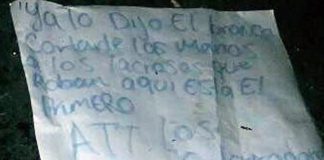 "ya lo Dijo El branca
Cortarle las manos
a los lacrosos que
Roban aqui Esta El
PRIMERO
ATT. los